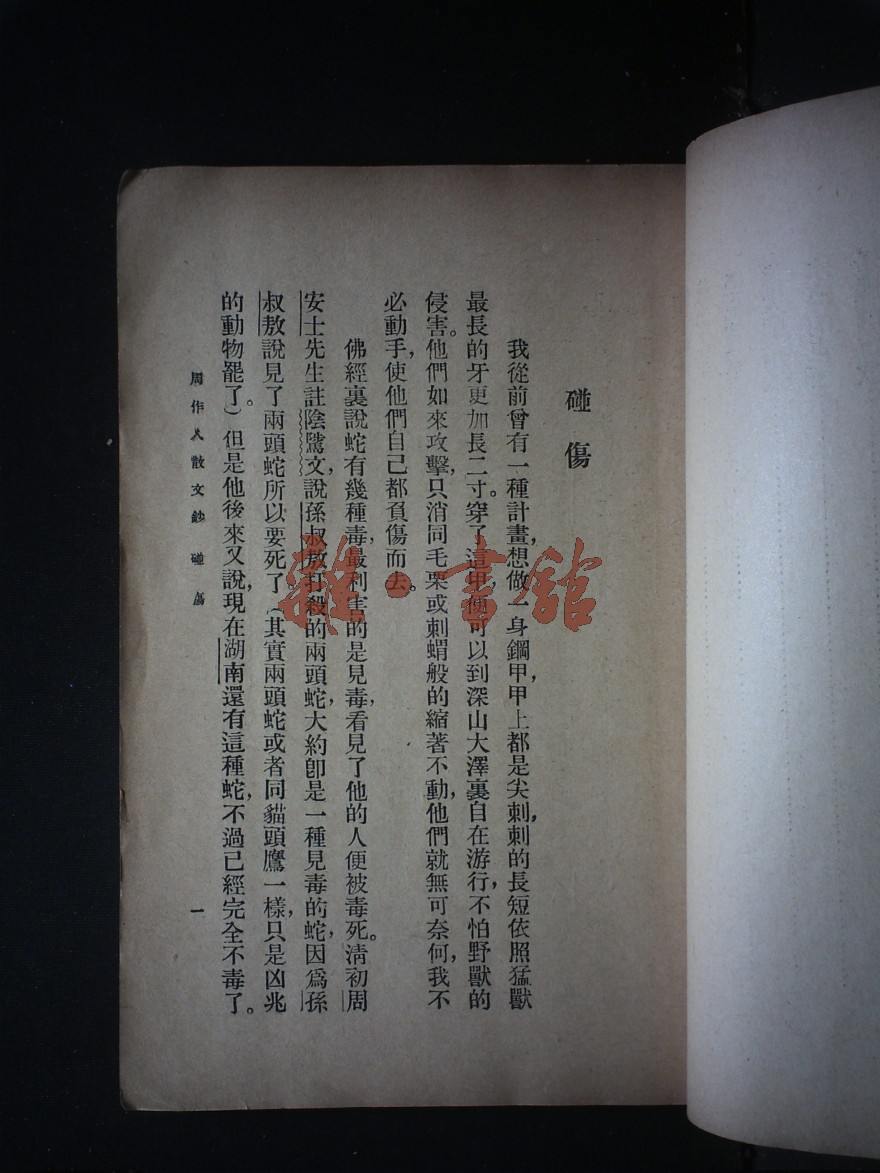 碰傷
我從前曾有一種計畫，想做一身鋼甲，甲上都是尖刺，刺的長短依照猛獸
最長的牙更加長二寸。穿了這甲，便可以到深山大澤裏自在游行，不怕野獸的
侵害。他們如來攻擊，只消同毛栗或刺蝟般的縮著不動，他們就無可奈何，我不
必動手，使他們自己都負傷而去。
佛經裏說蛇有幾種毒，最利害的是見毒，看見了他的人便被毒死。清初周
安士先生註陰隲文，說孫叔敖打殺的兩頭蛇，大約卽是一種見毒的蛇，因爲孫
叔敖說見了兩頭蛇所以要死了。（其實兩頭蛇或者同貓頭鷹一樣，只是凶兆
的動物罷了。）但是他後來又說，現在湖南還有這種蛇，不過已經完全不毒了。
周作人散文鈔 碰傷
一
雜·書館